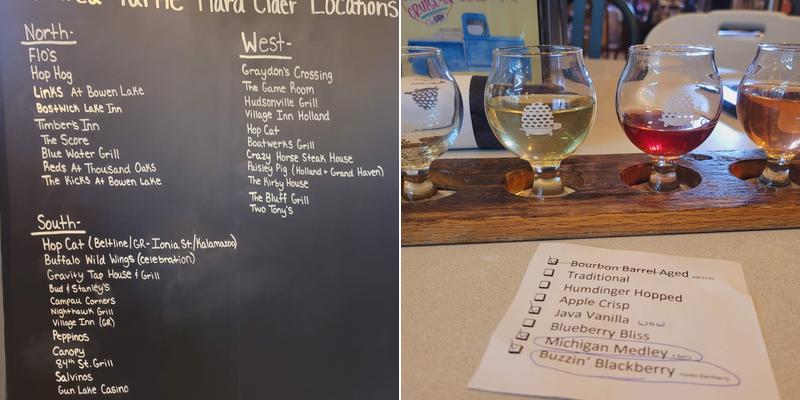 Turtle Hard Cider Locations
North-
Flo's
Hop Hog
Links At Bowen Lake
Bostwick Lake Inn
Timber's Inn
The Score
Blue Water Grill
Reds At Thousand Oaks
The Kicks At Bowen Lake
West-
Graydon's Crossing
The Game Room
Hudsonville Grill
Village Inn Holland
Hop Cat
Boatwerks Grill
Crazy Horse Steak House
Paisley Pig (Holland + Grand Haven)
The Kirby House
The Bluff Grill
Two Tony's
South-
Hop Cat (Beltline/GR-Ionia St./Kalamazoo)
Buffalo Wild Wings (celebration)
Gravity Tap House & Grill
Bud & Stanley's
Campau Corners
Nighthawk Grill
Village Inn (GR)
Peppinos
Canopy
84th St. Grill
Salvinos
Gun Lake Casino
CRUISE-IN
Bourbon Barrel Aged
Traditional
Humdinger Hopped
Apple Crisp
Java Vanilla wow
Blueberry Bliss
Michigan Medley
Buzzin' Blackberry